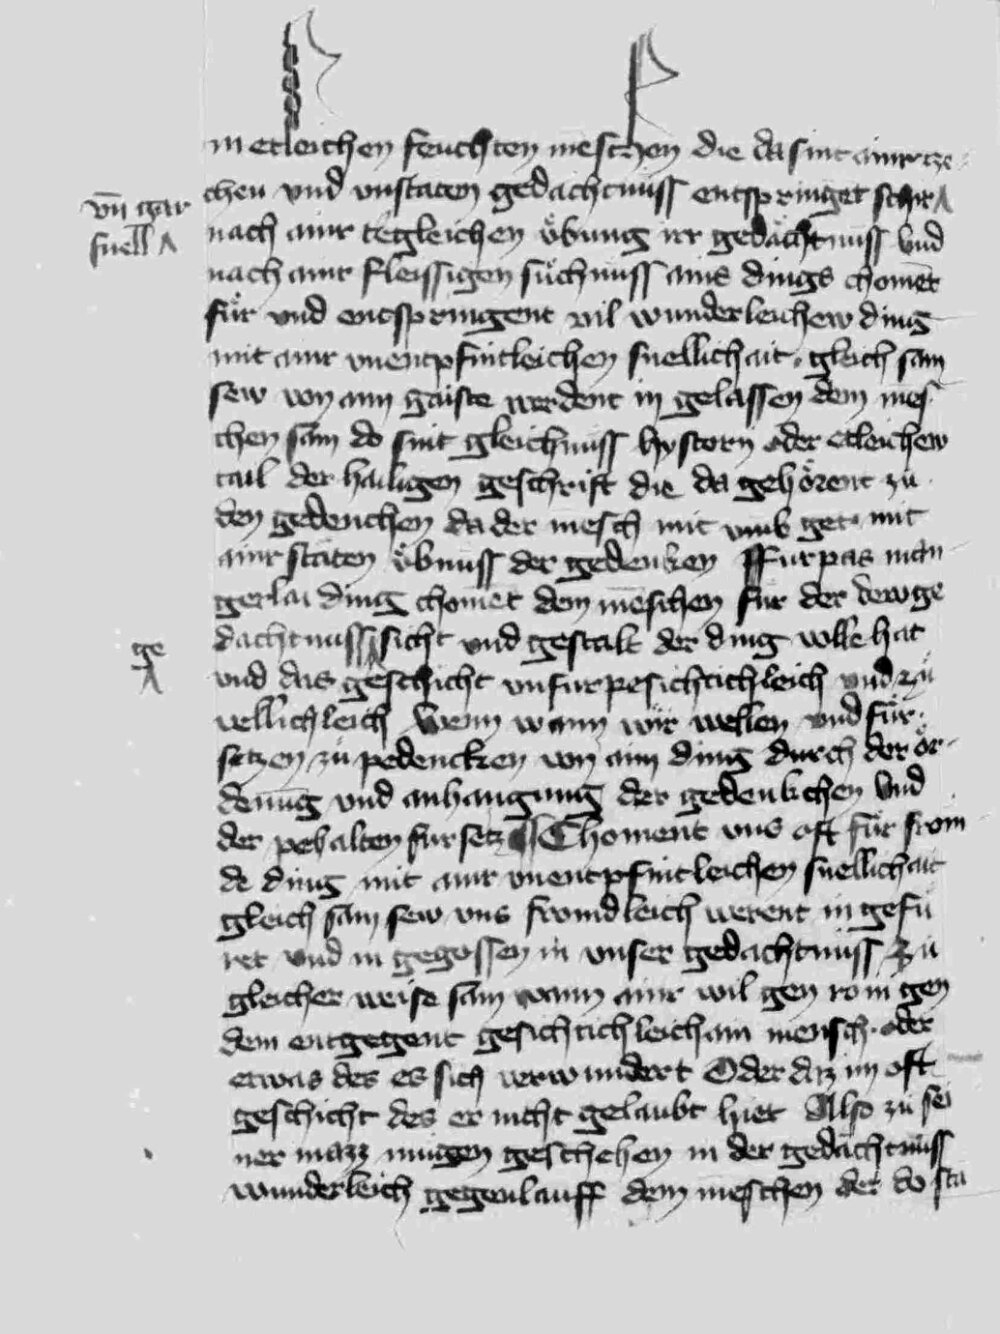 in etleichen feuchten meschen die da sint ainr tze
chen vnd vnstaten gedachtnuss entspringet schir
vn̄ gar
snell
nach ainr tegleichen vͤbung irr gedächtnuss vnd
nach ainr fleissigen suͤchnuss ains dings chomēt
fuͤr vnd entspringent vil wunderleichew ding
mit ainr vnentpfintleichen snellichait gleich sam
sew von aim gaiste werdent in gelassen dem mēs
chen sam do sint gleichnuss hystorn oder etleichew
tail der hailigen geschrift die da gehoͤrent zu
den gedenchen da der mesch mit vmb get mit
ainr stäten vͤbnuss der gedenken Furpas man
gerlai ding chomēt dem mēschen fuͤr der der ge
dachtnuss sicht vnd gestalt der ding wille hat
ge
vnd das geschicht vnfurpesichtichleich vnd zu
vellichleich Wenn wann wir wellen vnd fuͤr
setzen zu pedencken von aim ding durch der oͤr
denūg vnd anhangung der gedenkchen vnd
der pehalten fursetz Choment vns oft fuͤr from
de ding mit ainr vnentpfintleichen snellichait
gleich sam sew vns fromdleich werent in gefu
ret vnd in gegossen in vnser gedachtnuss Zu
gleicher weise sam wann ainr wil gen rom gen
dem entgegent gesichtichleich ain mensch oder
etwas des es sich verwundert Oder daz im oft
geschicht des er nicht gelaubt hiet Also zu sei
ner mazz mugen geschehen in der gedächtnuss
wunderleich gegenlauff dem mēschen der do sta